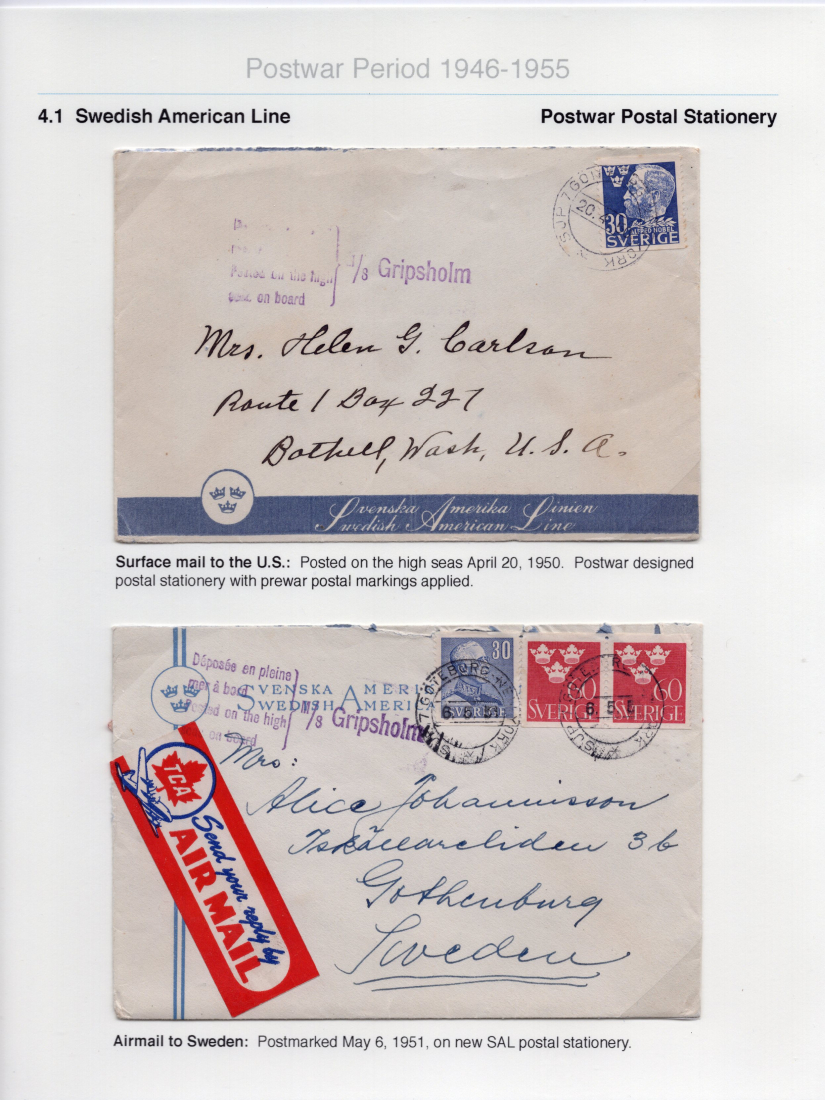 Postwar Period 1946-1955
4.1 Swedish American Line
Postwar Postal Stationery
SJP 7 GÖ
20.
30
ALFRED NOBEL
SVERIGE
YORK
Posted on the high
on board
M/s Gripsholm
Mrs. Helen G. Carlson
Route 1 Box 227
Bothell, Wash, U. S. A.
Svenska Amerika Linien
Swedish American Line
Surface mail to the U.S.: Posted on the high seas April 20, 1950. Postwar designed
postal stationery with prewar postal markings applied.
Déposée en pleine
mer à bord
Posted on the high
on board
M/s Gripsholm
SVENSKA AMERI
SWEDISH AMERI
30
SVERIGE
60
SVERIGE
60
SVERIGE
GÖTEBORG
YORK
6.5.5
TCA
Send your reply by
AIR MAIL
Mrs:
Alice Johannisson
3 b
Gothenburg
Sweden
Airmail to Sweden: Postmarked May 6, 1951, on new SAL postal stationery.